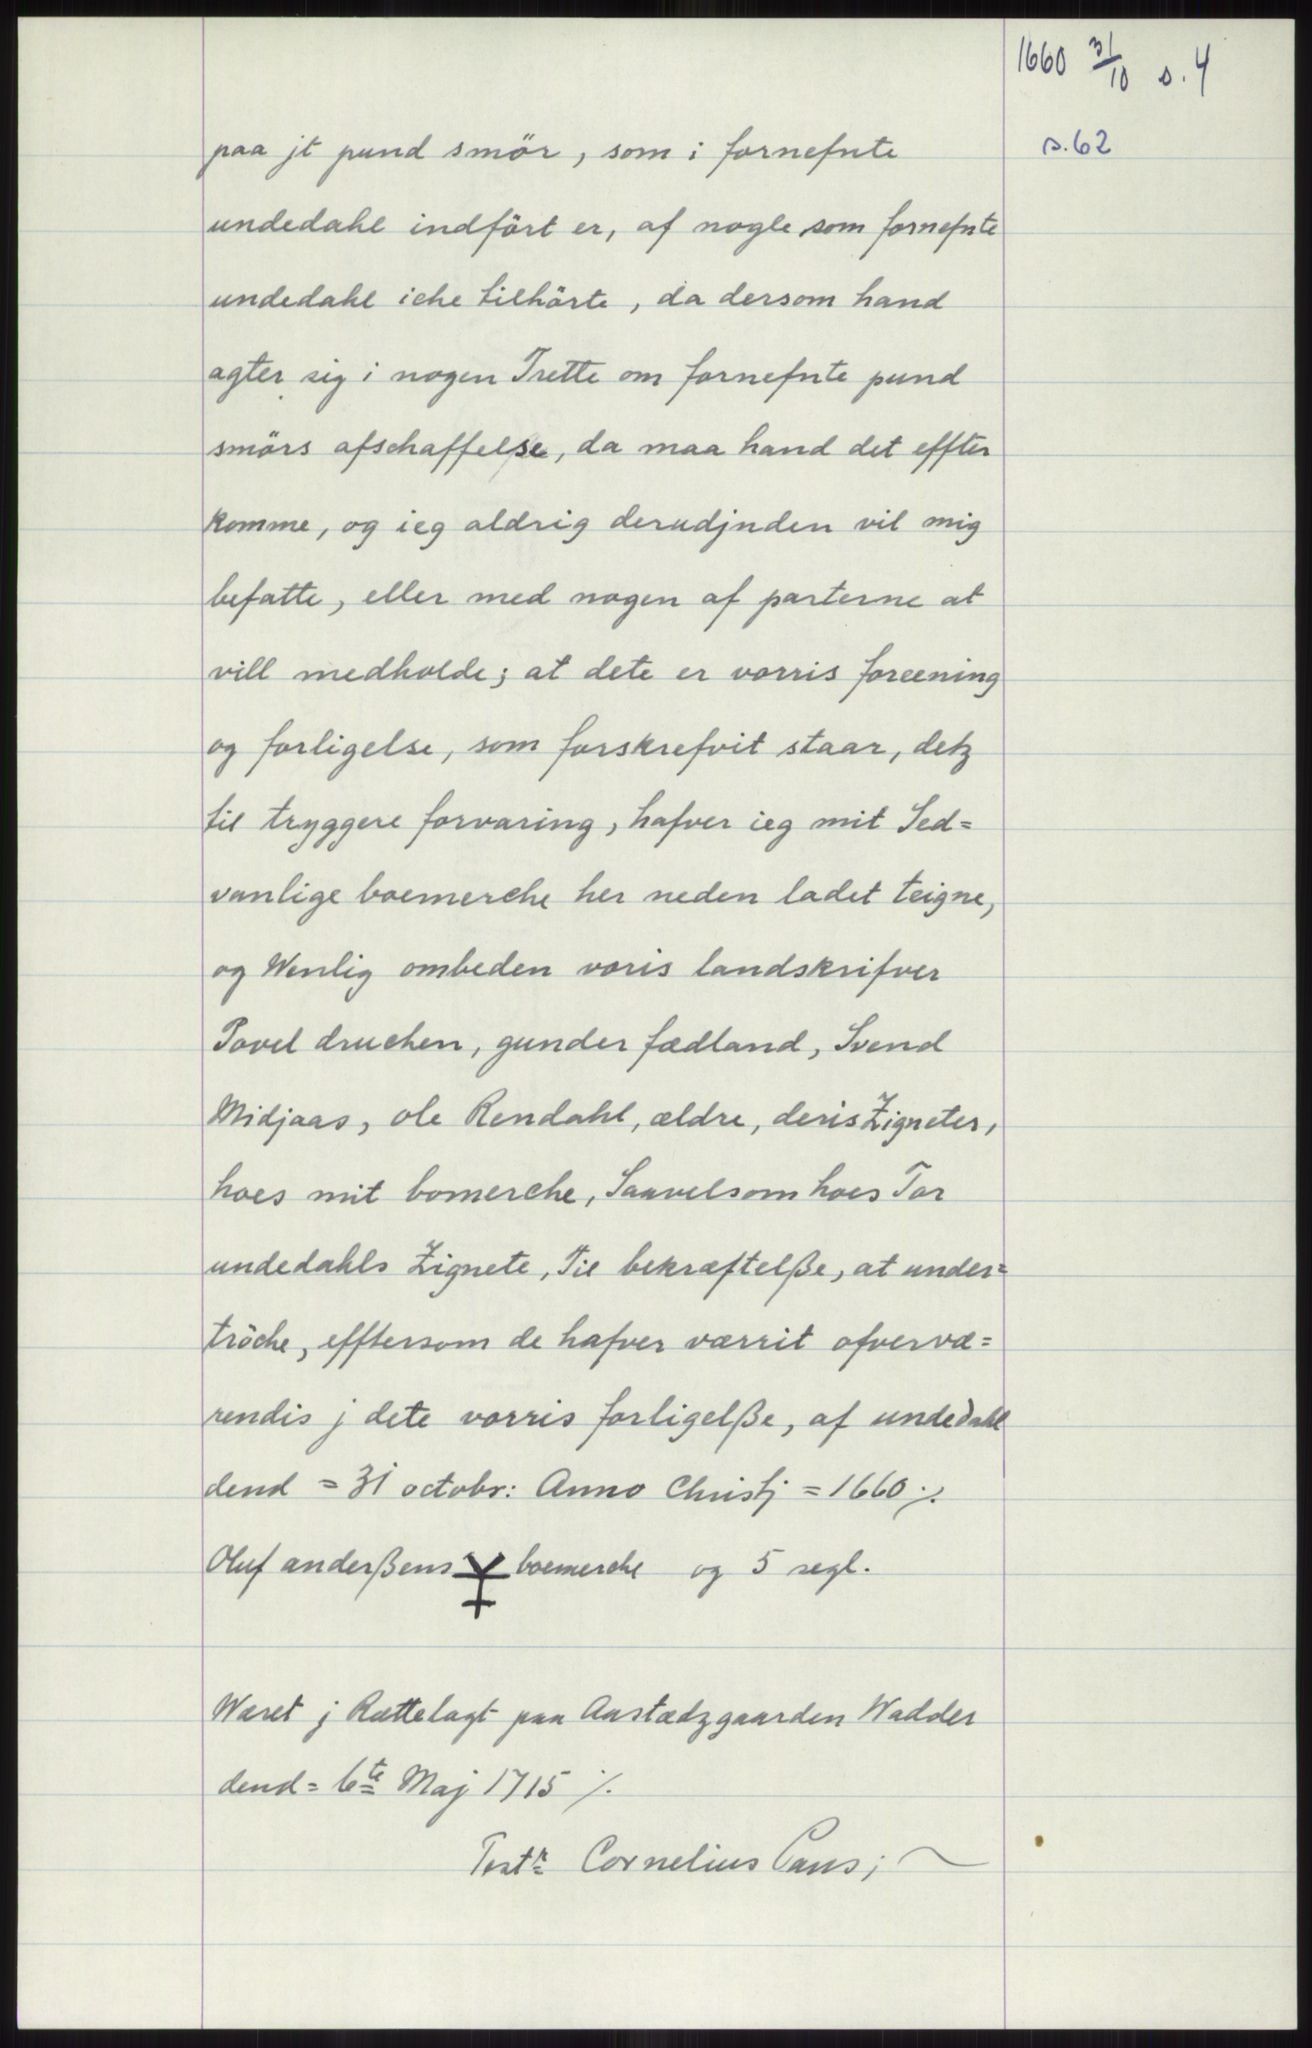 1660 31/10 s. 4
s. 62
paa jt pund smör, som i fornefnte
undedahl indfört er, af nogle som fornefnte
undedahl iche tilhörte, da dersom hand
agter sig i nogen Trette om fornefnte pund
smörs afschaffelse, da maa hand det effter
komme, og ieg aldrig derudjnden vil mig
befatte, eller med nogen af parterne at
vill medholde; at dete er vorris foreening
og forligelse, som forskrefvit staar, detz
til tryggere forvaring, hafver ieg mit Sed=
vanlige boemerche her neden ladet teigne,
og Wenlig ombeden voris landskrifver
Povel druchen, gunder fædland, Svend
Midjaas, ole Rendahl, ældre, deris Zigneter,
hoes mit bomerche, Saavelsom hoes Tor
undedahls Zignete, Til bekræftelße, at under=
tröche, efftersom de hafver værrit ofververæ=
rendis j dete vorris forligelße, af undedahl
dend = 31 octobr: Anno Christj = 1660 ./.
Oluf anderßens boemerche og 5 segl.
Wæret j Rættelagt paa Aastædzgaarden Wadder
dend = 6te Maj 1715 ./.
Testr: Cornelius Paus;